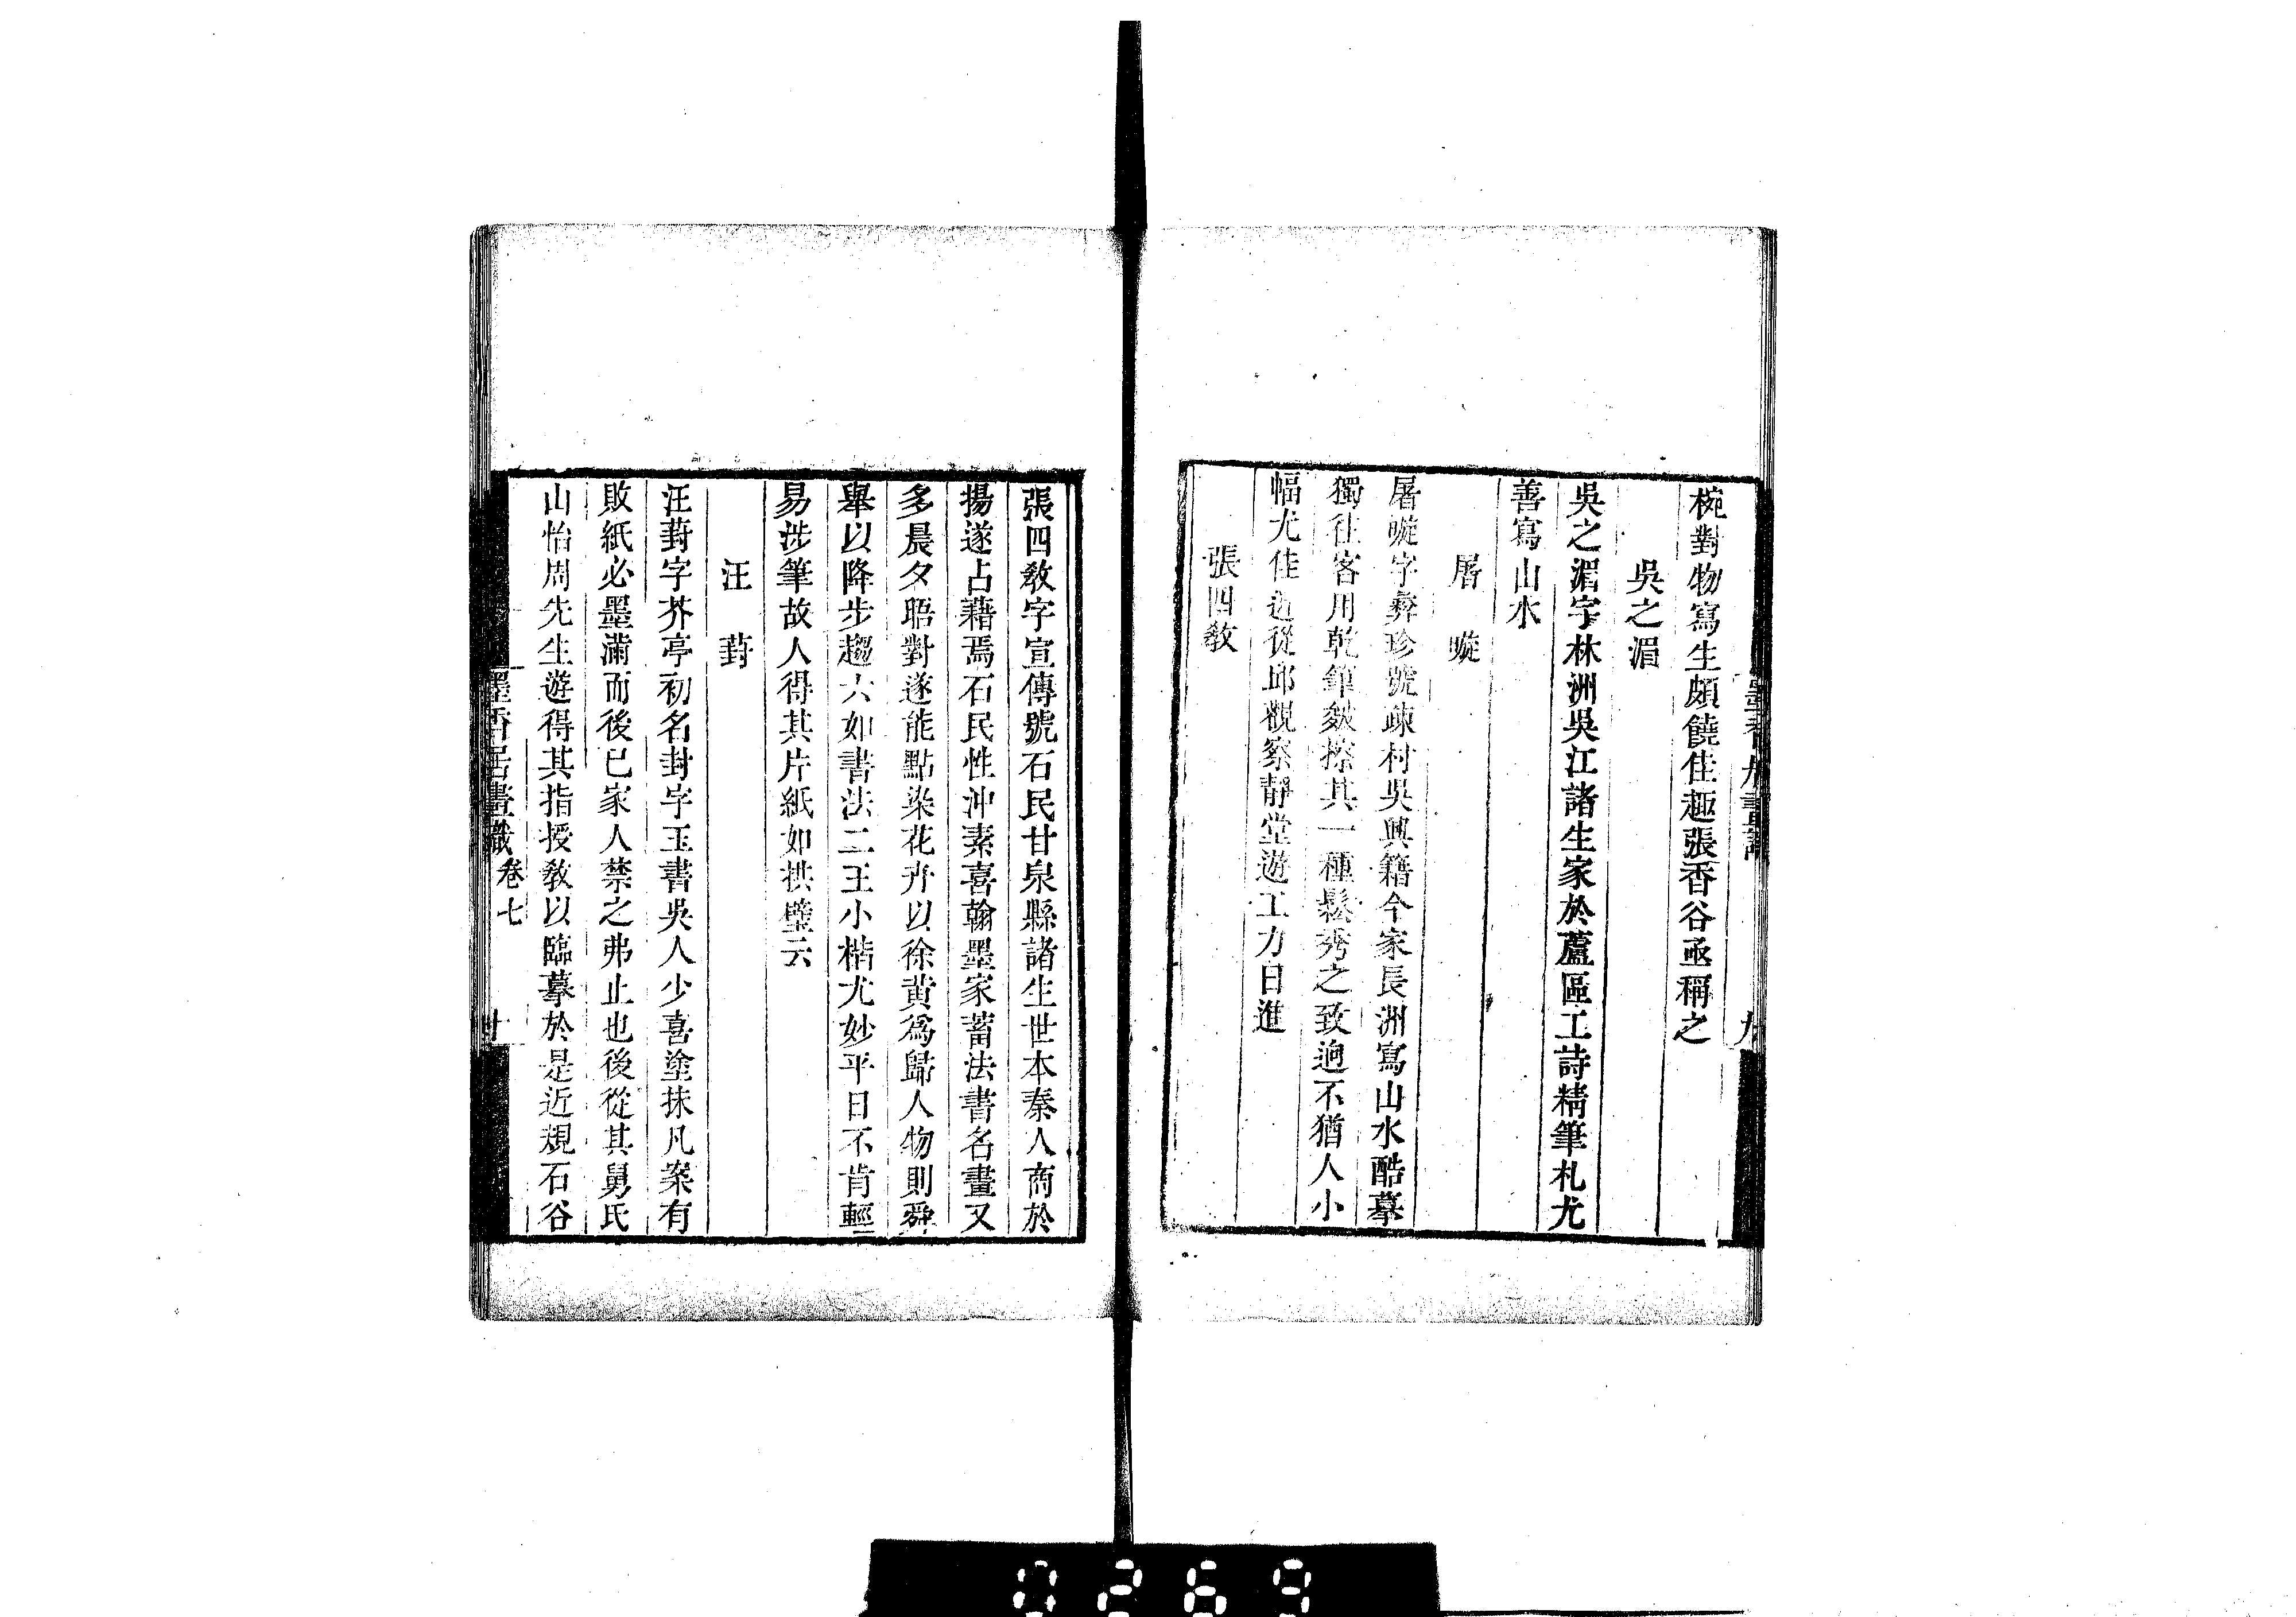 椀對物寫生頗饒佳趣張香谷亟稱之
吳之湄
吳之湄字林洲吳江諸生家於蘆區工詩精筆札尤
善寫山水
屠㬢
屠㬢字彝珍號疎村吳興籍今家長洲寫山水酷摹
獨往客用乾筆皴擦其一種鬆秀之致逈不猶人小
幅尤佳近從邱觀察靜堂遊工力日進
張四敎
九
張四敎字宣傳號石民甘泉縣諸生世本秦人商於
揚遂占藉焉石民性沖素喜翰墨家蓄法書名畫又
多晨夕晤對遂能點染花卉以徐黃爲歸人物則舜
舉以降步趨六如書法二王小楷尤妙平日不肯輕
易涉筆故人得其片紙如拱璧云
汪葑
汪葑字芥亭初名封字玉書吳人少喜塗抹凡案有
敗紙必墨滿而後已家人禁之弗止也後從其舅氏
山怡周先生遊得其指授敎以臨摹於是近規石谷
墨香居畫識 卷七 十
0269